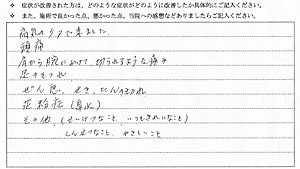 ※ 症状が改善された方は、どのような症状がどのように改善したか具体的にご記入ください。
※ また、施術で良かった点、悪かった点、当院への感想などありましたらご記入ください。
病気のケアで来ました。
頭痛
肩から腕にかけて、切られるような痛み
足のもつれ
ぜん息、せき、たんのきれ
花粉症（鼻水）
その他、（せいけつなこと、いつもきれいなこと）
しんせつなこと、やさしいこと